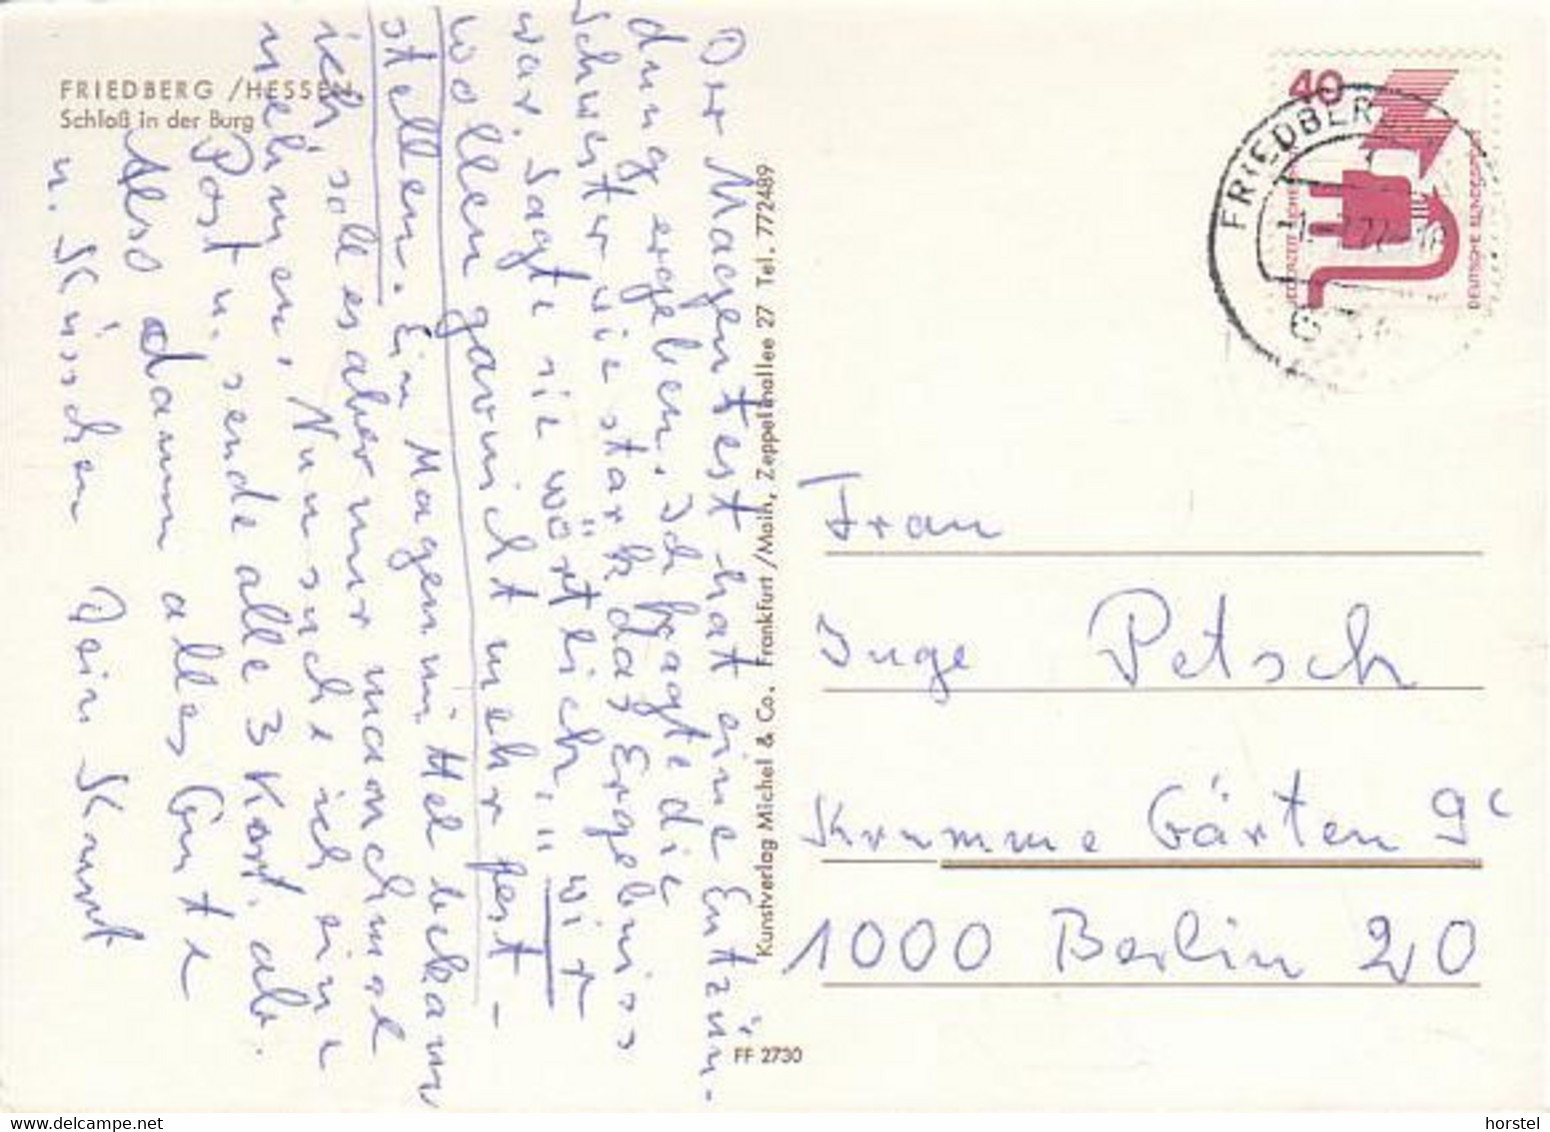 FRIEDBERG /HESSEN
Schloß in der Burg
Der Magentest hat eine Entzün-
dung ergeben. Ich fragte die
Schwester wie stark das Ergebniss
war. Sagte sie wörtlich, " wir
wollen garnicht mehr fest-
stellen. Ein Magenmittel bekam
ich, soll es aber nur manchmal
nehmen. Nun suche ich eine
Post u. sende alle 3 Kart. ab.
Also dann alles Gute
u. Küsschen Dein
Kunstverlag Michel & Co. Frankfurt/Main, Zeppelinallee 27 Tel. 772489
FF 2730
40
JEDERZEIT SICHERHEIT
DEUTSCHE BUNDESPOST
FRIEDBERG
Frau
Inge Petsch
Krumme Gärten 9c
1000 Berlin 20
www.delcampe.net
horstel